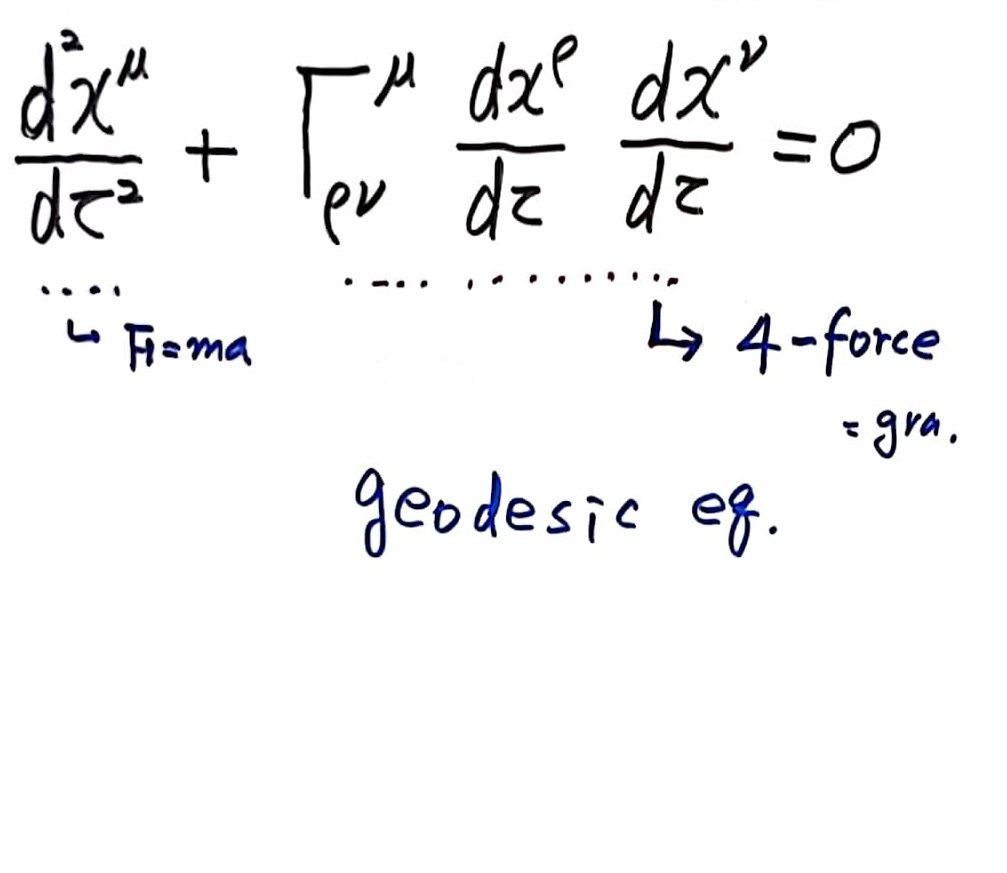 d²x^μ/dτ² + Γ^μ_ρν dx^ρ/dτ dx^ν/dτ = 0
↳ F=ma
↳ 4-force
= gra.
geodesic eq.